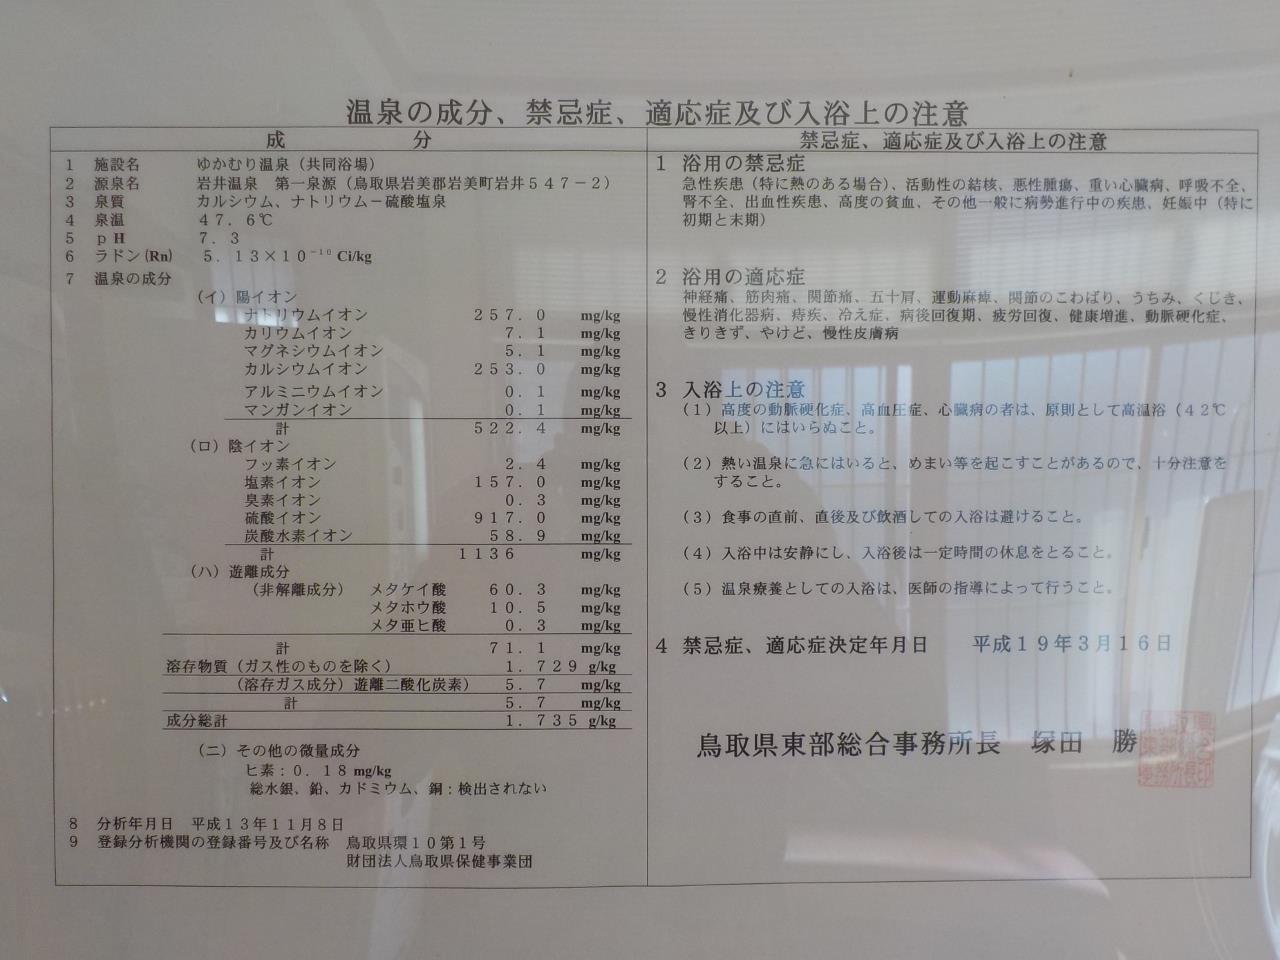 温泉の成分、禁忌症、適応症及び入浴上の注意
成 分
1 施設名 ゆかむり温泉（共同浴場）
2 源泉名 岩井温泉 第一泉源（鳥取県岩美郡岩美町岩井５４７－２）
3 泉質 カルシウム、ナトリウム－硫酸塩泉
4 泉温 ４７．６℃
5 ｐH ７．３
6 ラドン(Rn) ５．１３×１０⁻¹⁰ Ci/kg
7 温泉の成分
（イ）陽イオン
ナトリウムイオン ２５７．０ mg/kg
カリウムイオン ７．１ mg/kg
マグネシウムイオン ５．１ mg/kg
カルシウムイオン ２５３．０ mg/kg
アルミニウムイオン ０．１ mg/kg
マンガンイオン ０．１ mg/kg
計 ５２２．４ mg/kg
（ロ）陰イオン
フッ素イオン ２．４ mg/kg
塩素イオン １５７．０ mg/kg
臭素イオン ０．３ mg/kg
硫酸イオン ９１７．０ mg/kg
炭酸水素イオン ５８．９ mg/kg
計 １１３６ mg/kg
（ハ）遊離成分
（非解離成分） メタケイ酸 ６０．３ mg/kg
メタホウ酸 １０．５ mg/kg
メタ亜ヒ酸 ０．３ mg/kg
計 ７１．１ mg/kg
溶存物質（ガス性のものを除く） １．７２９ g/kg
（溶存ガス成分）遊離二酸化炭素） ５．７ mg/kg
計 ５．７ mg/kg
成分総計 １．７３５ g/kg
（ニ）その他の微量成分
ヒ素：０．１８ mg/kg
総水銀、鉛、カドミウム、銅：検出されない
8 分析年月日 平成１３年１１月８日
9 登録分析機関の登録番号及び名称 鳥取県環１０第１号
財団法人鳥取県保健事業団
禁忌症、適応症及び入浴上の注意
1 浴用の禁忌症
急性疾患（特に熱のある場合）、活動性の結核、悪性腫瘍、重い心臓病、呼吸不全、
腎不全、出血性疾患、高度の貧血、その他一般に病勢進行中の疾患、妊娠中（特に
初期と末期）
2 浴用の適応症
神経痛、筋肉痛、関節痛、五十肩、運動麻痺、関節のこわばり、うちみ、くじき、
慢性消化器病、痔疾、冷え症、病後回復期、疲労回復、健康増進、動脈硬化症、
きりきず、やけど、慢性皮膚病
3 入浴上の注意
（１）高度の動脈硬化症、高血圧症、心臓病の者は、原則として高温浴（４２℃
以上）にはいらぬこと。
（２）熱い温泉に急にはいると、めまい等を起こすことがあるので、十分注意を
すること。
（３）食事の直前、直後及び飲酒しての入浴は避けること。
（４）入浴中は安静にし、入浴後は一定時間の休息をとること。
（５）温泉療養としての入浴は、医師の指導によって行うこと。
4 禁忌症、適応症決定年月日 平成１９年３月１６日
鳥取県東部総合事務所長 塚田 勝